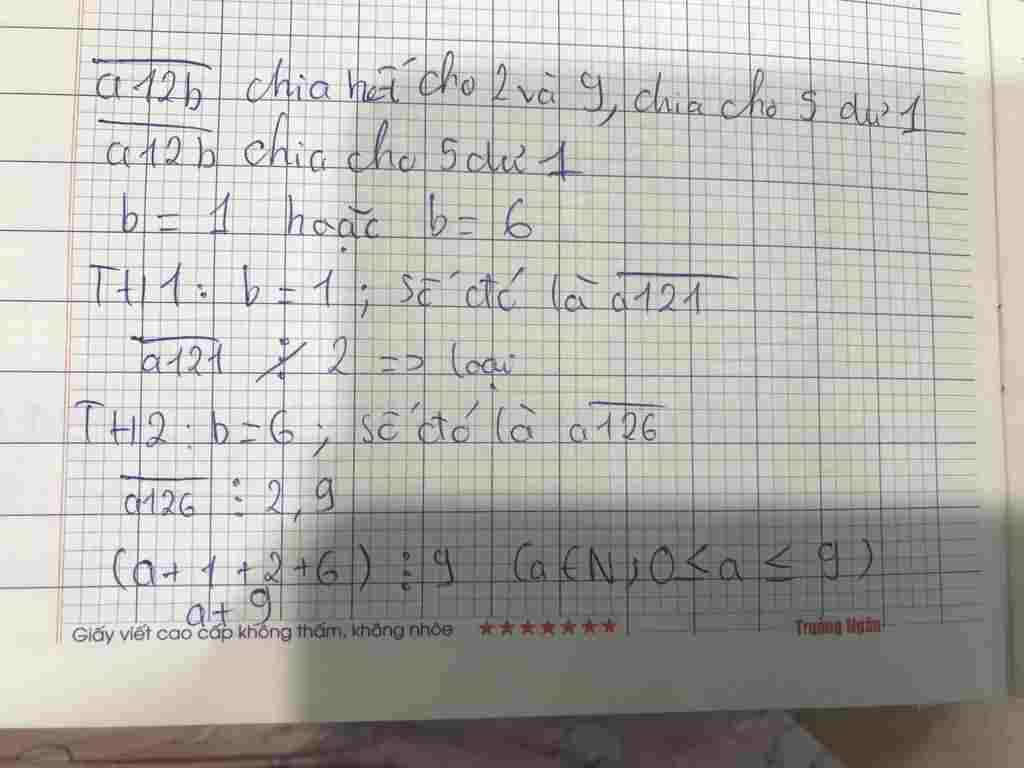 a12b chia hết cho 2 và 9, chia cho 5 dư 1
a12b chia cho 5 dư 1
b = 1 hoặc b = 6
TH1: b = 1; số đó là a121
a121 ⋮̸ 2 => loại
TH2: b = 6; số đó là a126
a126 ⋮ 2, 9
(a + 1 + 2 + 6) ⋮ 9 (a ∈ N; 0 < a ≤ 9)
a + 9
Giấy viết cao cấp không thấm, không nhòe ★★★★★★★ Trường Ngân